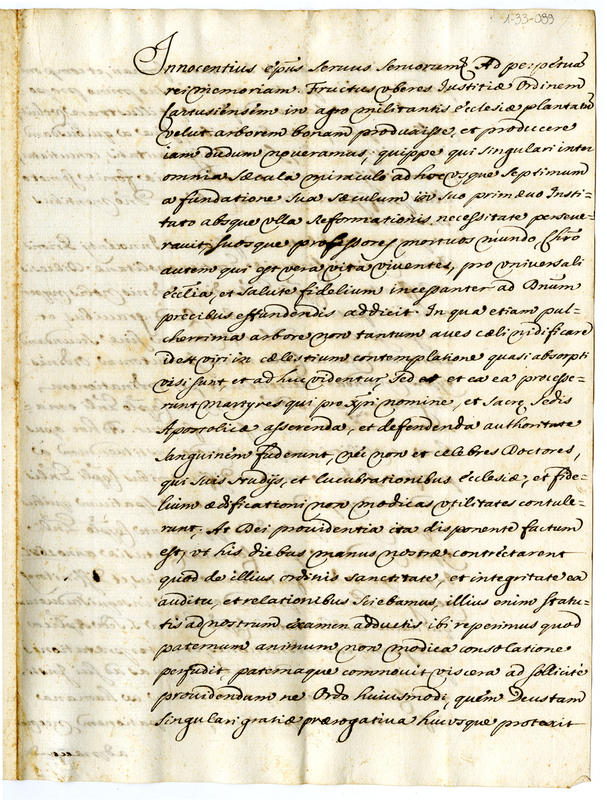 1-33-099
Innocentius ep̃us servus servorum Ad perpetuã
rei memoriam. Fructus uberes Iustitiæ Ordinem
Cartusiensem in agro militantis ecclesiæ plantatũ
velut arborem bonam produxisse, et producere
iam dudum noveramus; quippe qui singulari inter
omnia sæcula miraculo ad hoc usque septimum
a fundatione sua sæculum in suo primævo Insti-
tuto absque ulla Reformationis necessitate perseve-
ravit, suosque professores mortuos mundo, Chr̃o
autem qui est vera vita viventes, pro universali
Ecclĩa, et salute fidelium incessanter ad Dñum
precibus effundendis addicit. In qua etiam pul-
cherrima arbore non tantum aves cæli nidificare
id est viri in cælestium contemplatione quasi absorpti
visi sunt et ad huc videntur, sed et ex ea processe-
runt martyres qui pro Xp̃i nomine, et Sacræ Sedis
Apostolicæ asserenda, et defendenda authoritate
sanguinem fuderunt, nec non et celebres Doctores,
qui suis studijs, et lucubrationibus ecclesiæ, et fide-
lium ædificationi non modicas utilitates contule-
runt; At Dei providentia ita disponente factum
est, ut his diebus manus nostræ contrectarent
quod de illius ordinis sanctitate, et integritate ex
auditu, et relationibus sciebamus, illius enim statu-
tis ad nostrum examen adductis ibi reperimus quod
paternum animum non modica consolatione
perfudit paternaque commovit viscera ad sollicite
providendum ne Ordo huiusmodi, quem Deus tam
singulari gratiæ prærogativa hucusque protexit